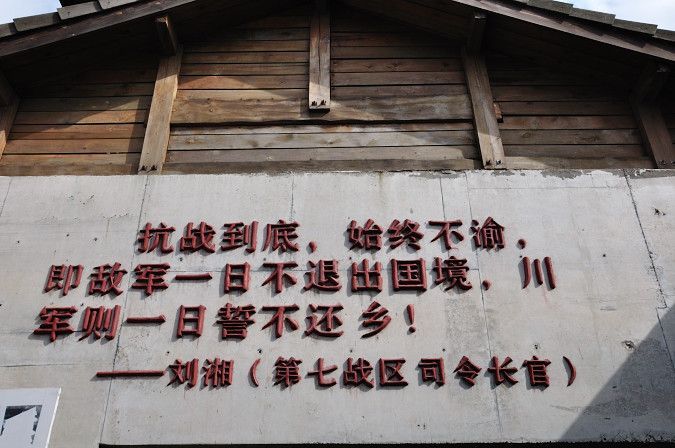 抗战到底，始终不渝，
即敌军一日不退出国境，川
军则一日誓不还乡！
——刘湘（第七战区司令长官）